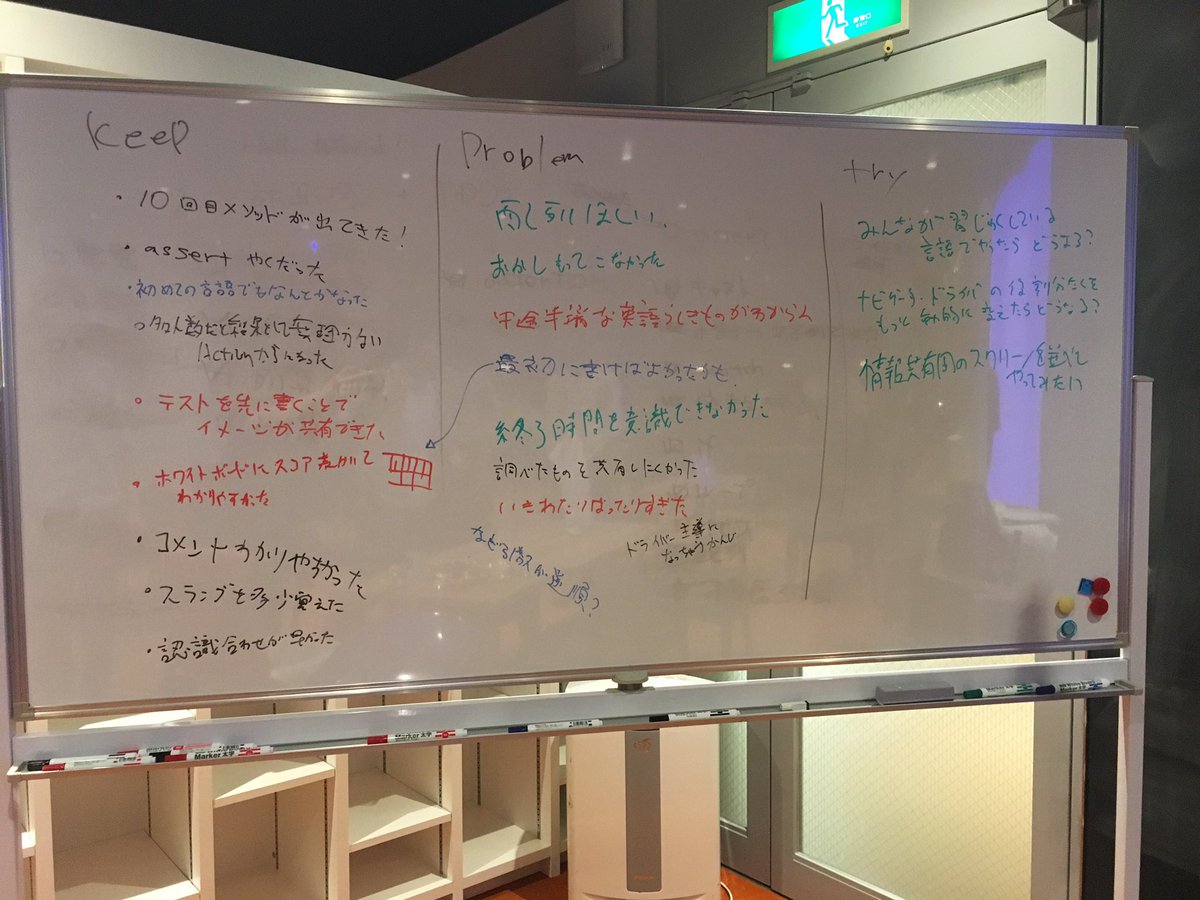 Keep
・10回目メソッドが出てきた!
・assert やくだった
・初めての言語でもなんとかなった
○多人数だと結果として無理のない
Actionが
・テストを先に書くことで
イメージが共有できた
・ホワイトボードにスコア表がいて
わかりやすかった
・コメントわかりやすかった
・スランプを多少覚えた
・認識合わせが早かった
Problem
雨し引ほしい
おかしもってこなかった
中途半端な英語らしきものがわからん
最初に書けばよかったかも
終了時間を意識できなかった
調べたものを共有しにくかった
いきあたりばったりすぎた
ドライバー主導に
なっちゃうかんじ
なげる順が逆順?
try
みんなが習じゅくしている
言語でやったらどうなる?
ナビゲータ・ドライバの役割分たんを
もっと動的に変えたらどうなる?
情報共有用のスクリーンを並べて
やってみたい
非常口
EXIT
Marker 太字
Marker 太字